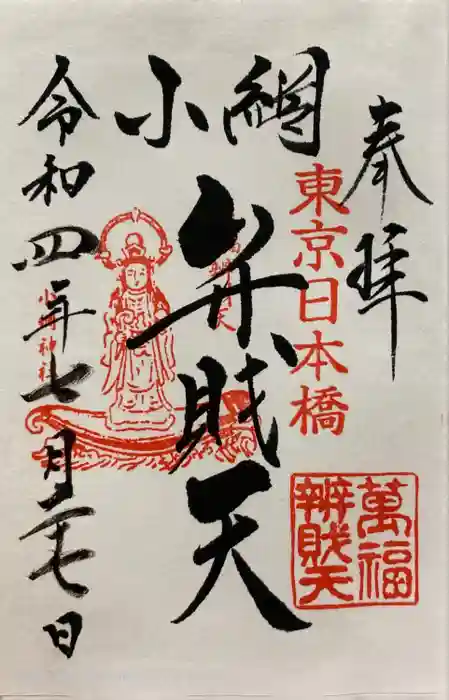 奉拝
東京日本橋
萬福
辨財天
小網
弁財天
小網神社
令和四年七月二十七日